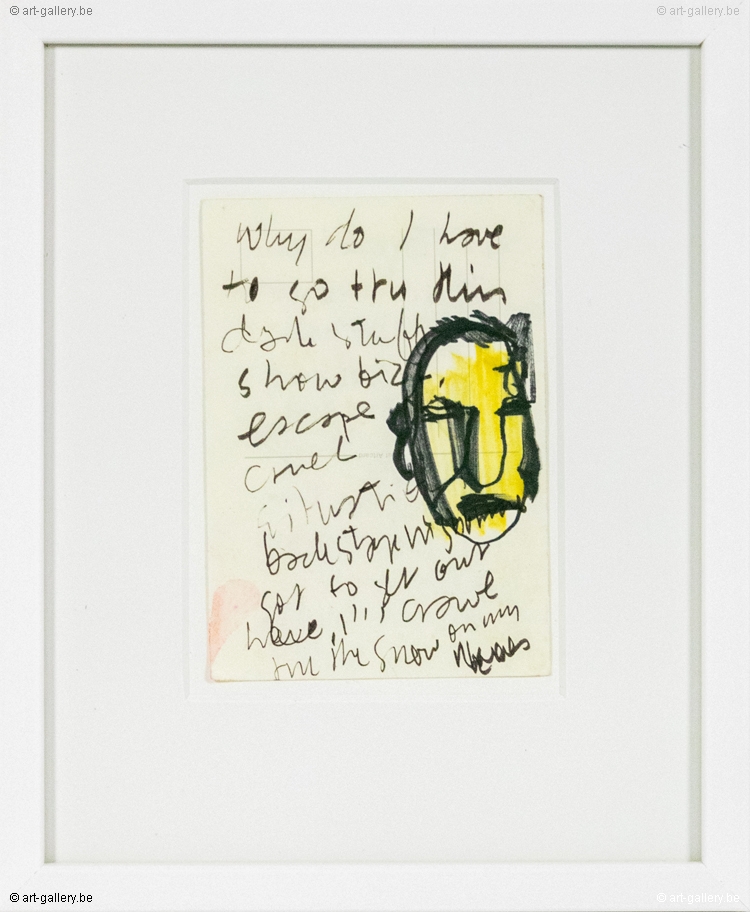 © art-gallery.be © art-gallery.be
Why do I have
to go tru this
dark stuff
show biz.
escape
cruel
situatie
backstage
got to get out
here !!! crawl
tru the snow on my
knees
© art-gallery.be © art-gallery.be